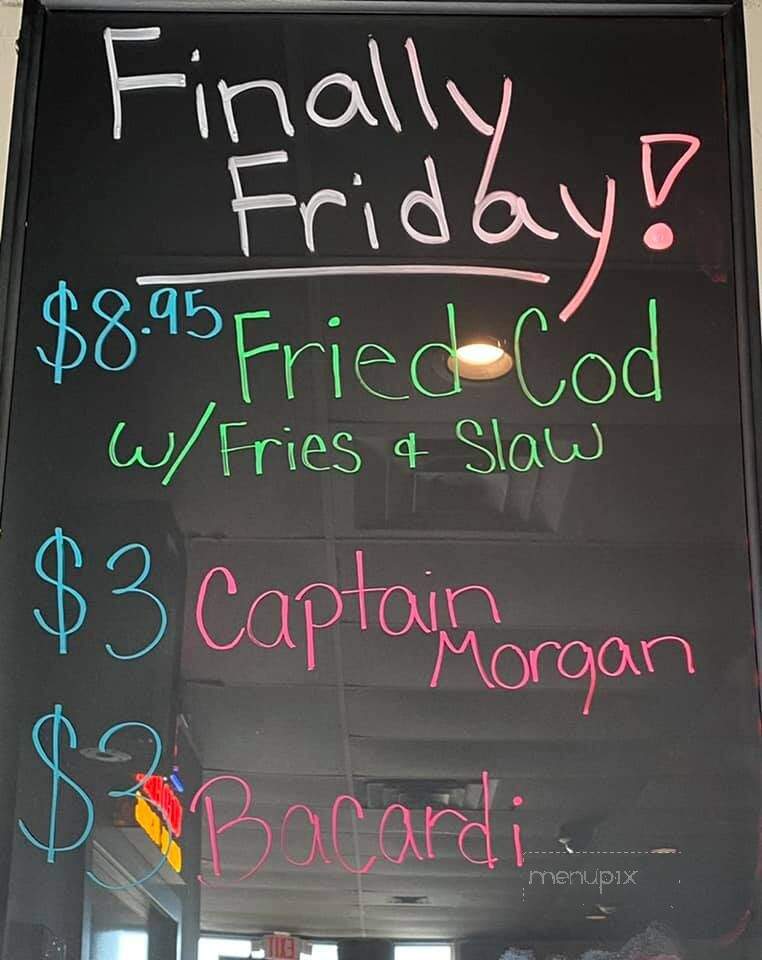 Finally
Friday!
$8.95 Fried Cod
w/ Fries & Slaw
$3 Captain
Morgan
$3 Bacardi
menupix
EXIT